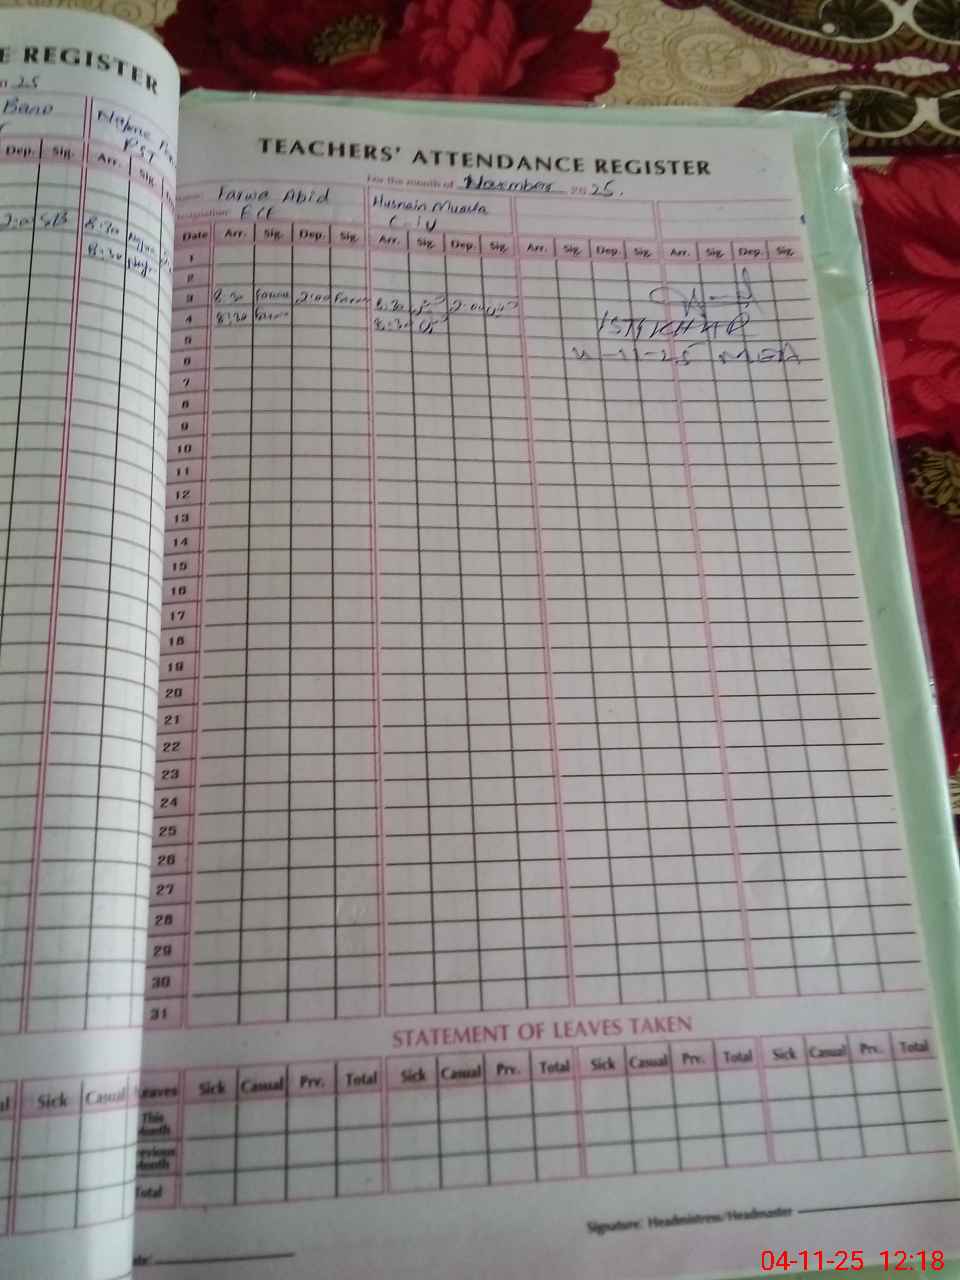 E REGISTER
25
Bano
Dep. Sig. Arr. Sig.
PST
8:30
8:30
TEACHERS' ATTENDANCE REGISTER
For the month of November 2025.
Farwa Abid
Husnain
ECE
C-iv
Date Arr. Sig. Dep. Sig. Arr. Sig. Dep. Sig. Arr. Sig. Dep. Sig. Arr. Sig. Dep. Sig.
1
2
3 8:30 Farwa 2:00 Farwa 8:30 2:00
4 8:30 Farwa 8:30
ISTIKHAR
5
4-11-25 MEA
6
7
8
9
10
11
12
13
14
15
16
17
18
19
20
21
22
23
24
25
26
27
28
29
30
31
STATEMENT OF LEAVES TAKEN
Sick Casual Leaves Sick Casual Prv. Total Sick Casual Prv. Total Sick Casual Prv. Total Sick Casual Prv. Total
This
Month
Previous
Month
Total
Signature: Headmistress/Headmaster
04-11-25 12:18